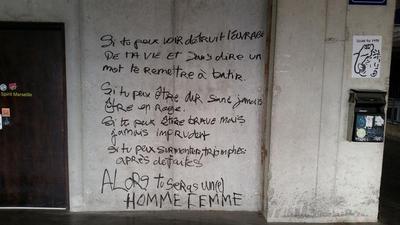 Si tu peux voir détruit l'euvrage
DE TA VIE ET sans dire un
mot te remettre à batir.
Si tu peux être dur sans jamais
être en rage.
Si tu peux être brave mais
jamais imprudent
Si tu peux surmonter, triomphes
après defaites
ALORS tu seras un(e)
HOMME FEMME
Spirit Marseille